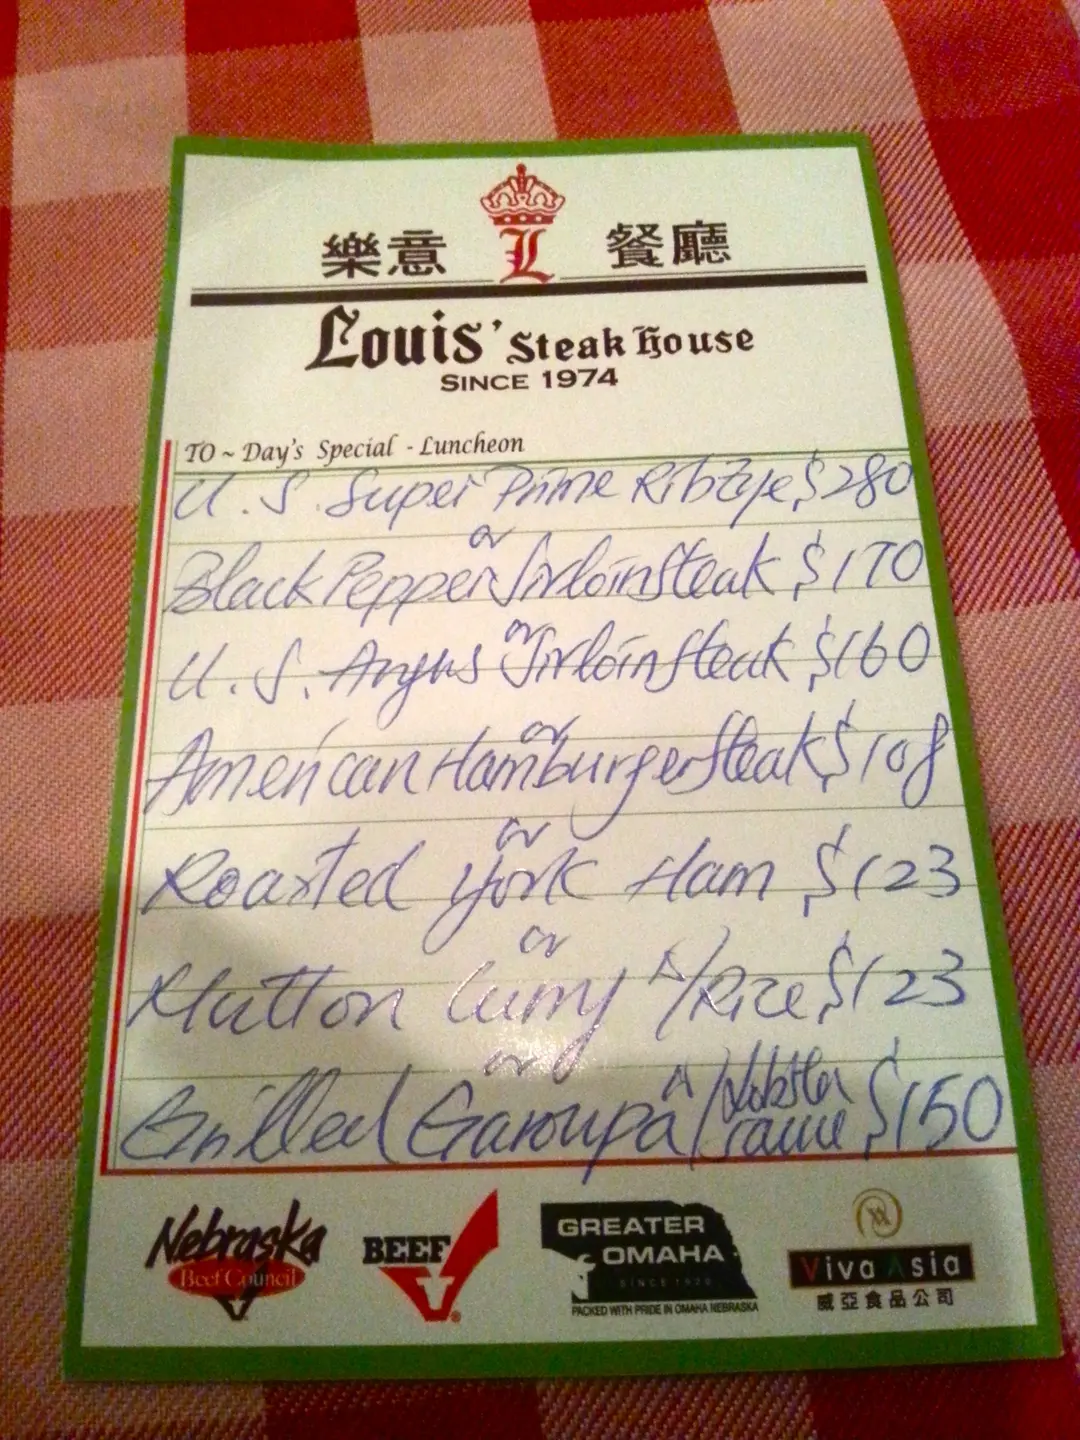 樂意 L 餐廳
Louis' Steak House
SINCE 1974
TO ~ Day's Special - Luncheon
U.S. Super Prime RibEye $280
or
Black Pepper Sirloin Steak $170
or
U.S. Angus Sirloin Steak $160
or
American Hamburger Steak $108
or
Roasted York Ham $123
or
Mutton Curry W/Rice $123
or
Grilled Garoupa W/Lobster Sauce $150
Nebraska Beef Council
BEEF
GREATER OMAHA
SINCE 1920
PACKED WITH PRIDE IN OMAHA NEBRASKA
Viva Asia
威亞食品公司